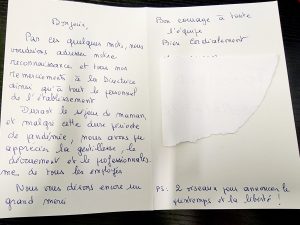 Bonjour,
Par ces quelques mots, nous
voudrions adresser notre
reconnaissance et tous nos
remerciements à la Directrice
ainsi qu'à tout le personnel
de l'établissement
Durant le séjour de maman,
et malgré cette dure période
de pandémie, nous avons pu
apprécier la gentillesse, le
dévouement et le professionnalis-
me de tous les employés
Nous vous devons encore un
grand merci
Bon courage à toute
l'équipe
Bien cordialement
PS: 2 oiseaux pour annoncer le
printemps et la liberté !